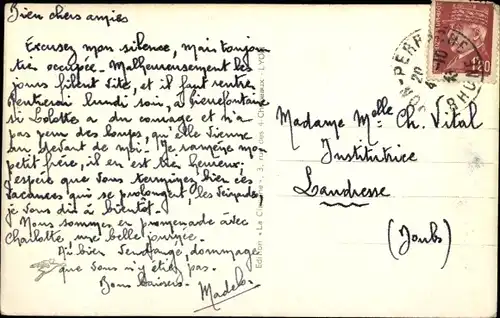 Bien chers amies
Excusez mon silence, mais toujours
très occupée. Malheureusement les
jours filent vite, et il faut rentrer
Rentrerai lundi soir, à Pierrefontaine
si Lolotte a du courage et n'a
pas peur des loups, qu'elle vienne
au devant de moi! Je ramène mon
petit frère, il en est très heureux.
J'espère que vous terminez bien ces
vacances qui se prolongent, les
je vous dis à bientôt.
Nous sommes en promenade avec
Charlotte, une belle journée.
Ai bien vendangé, dommage
que vous n'y étiez pas.
Bons baisers. Madel.
Edition "La Cigogne", 3, rue des Chapeaux - LYON
20
1F20
RHÔNE
Madame Melle Ch. Vital
Institutrice
Landresse
(Doubs)